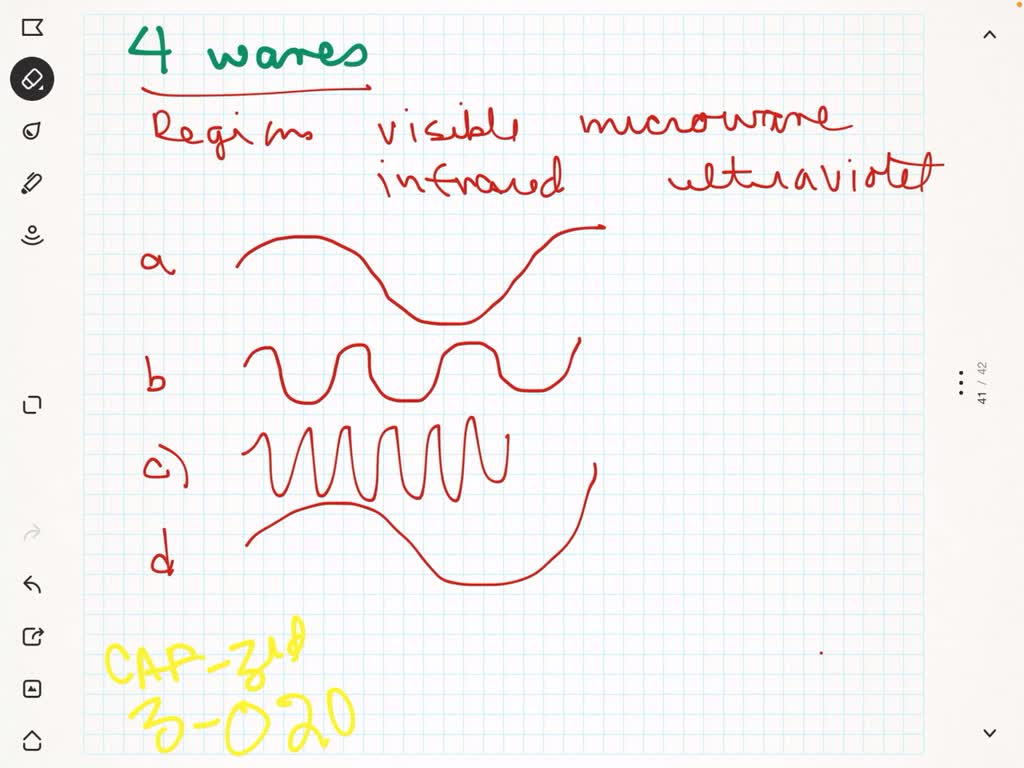 4 waves
Regions visible microwave
infrared ultraviolet
a
b
c)
d
3-020
41 / 42